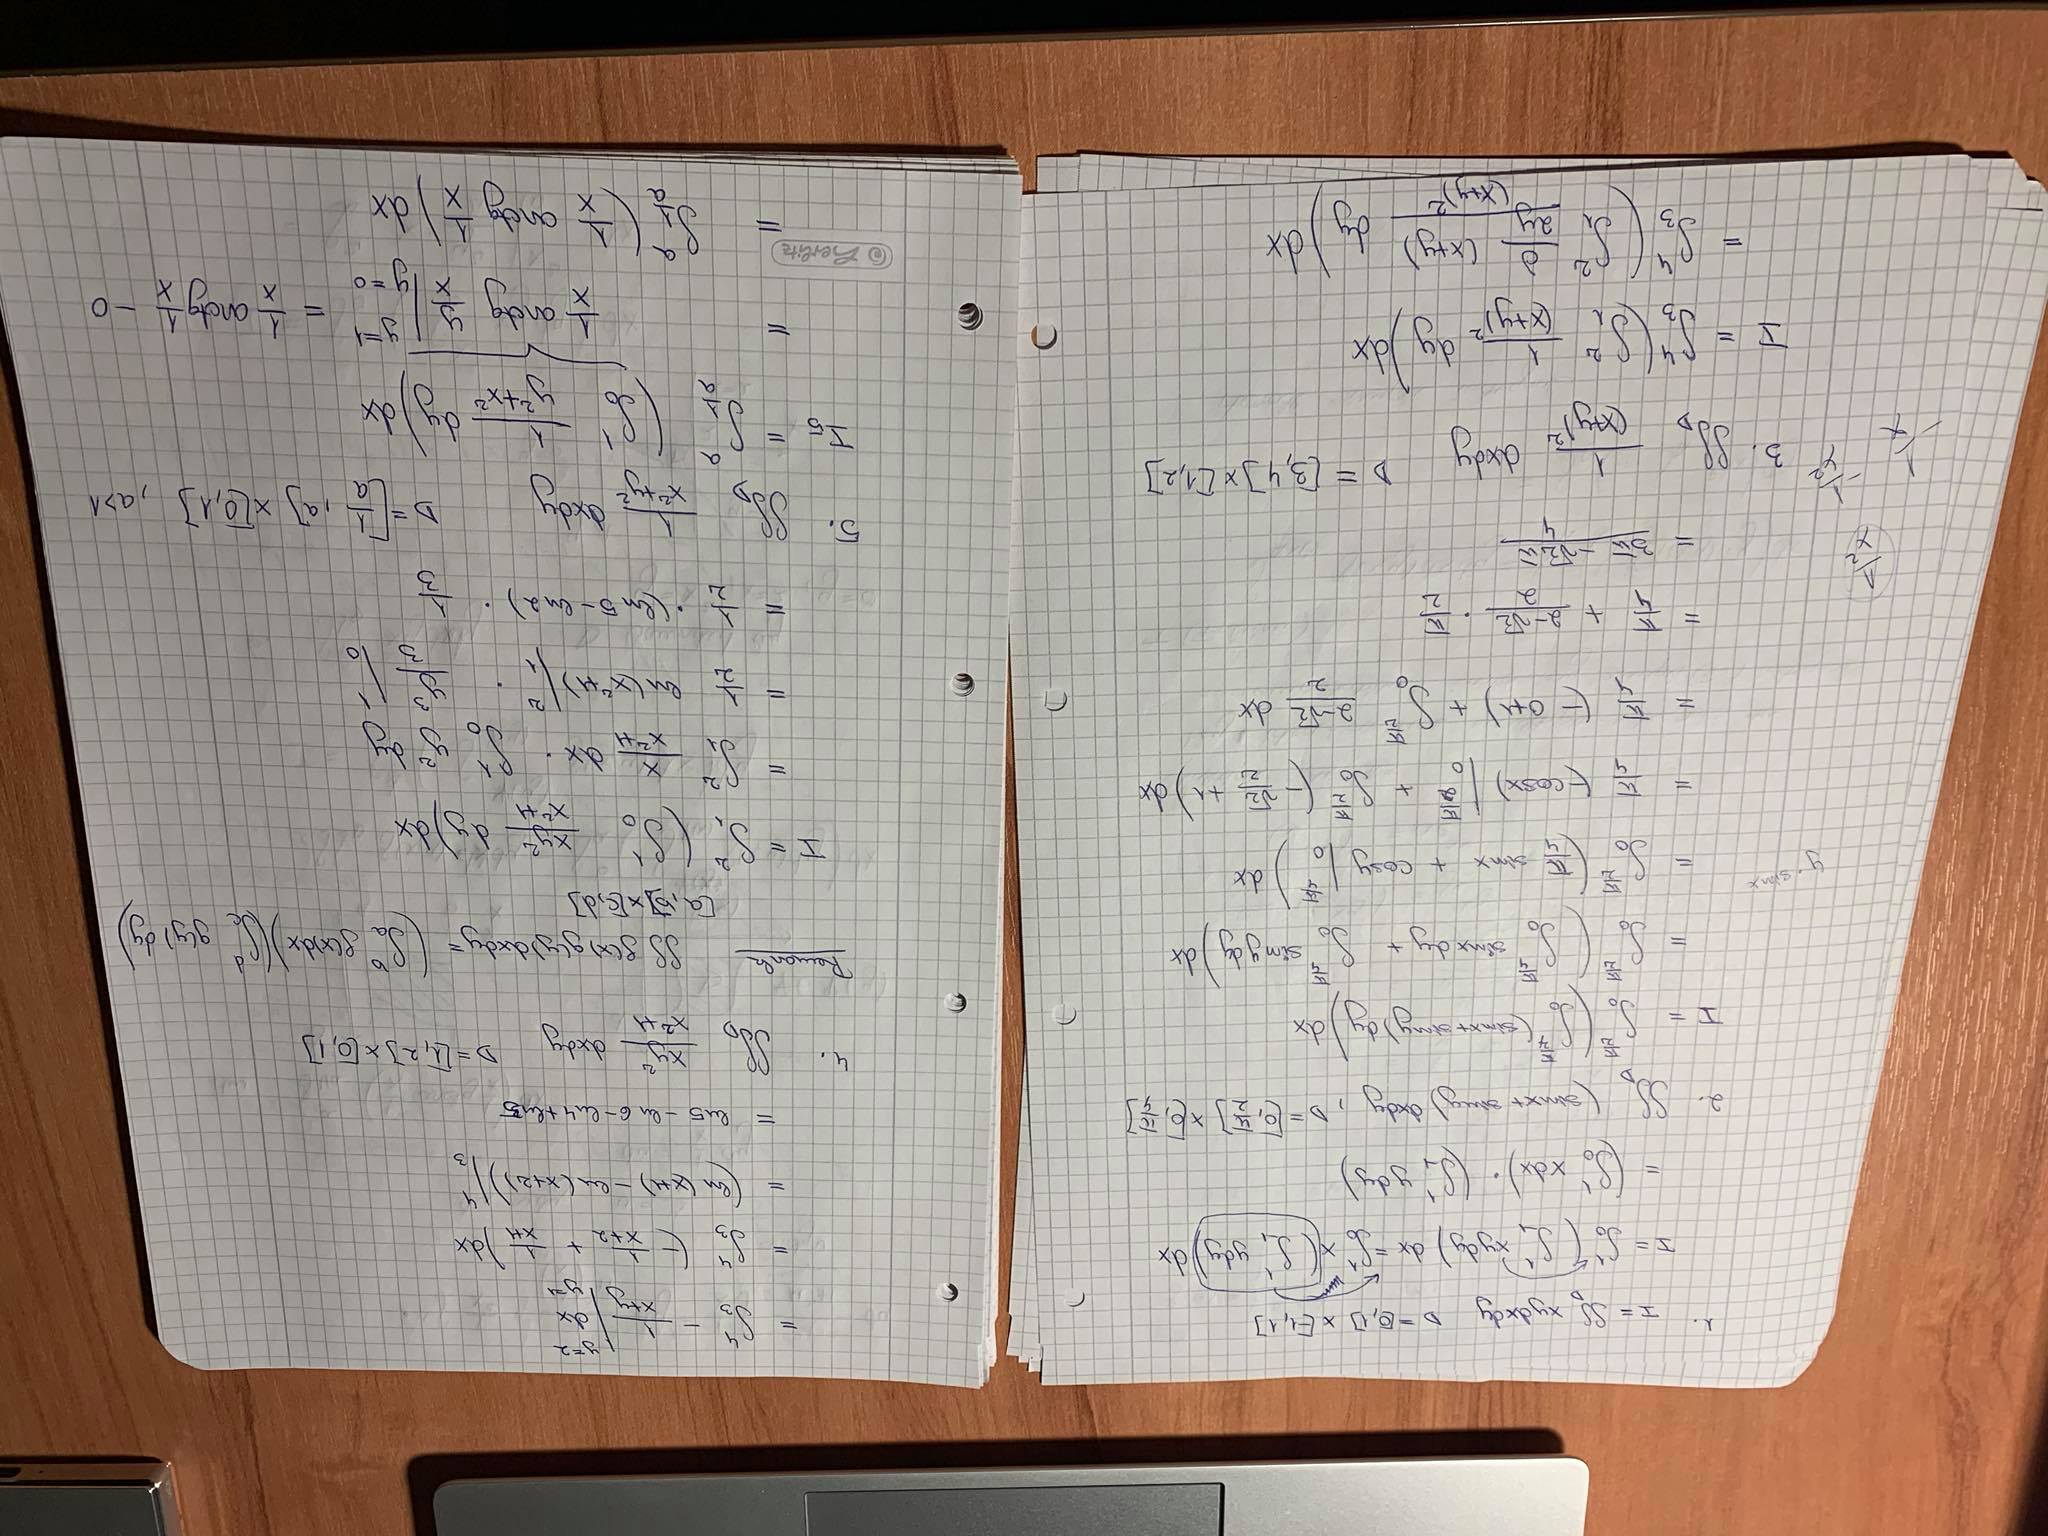 1. I = ∬_D xydxdy D = [0,1] × [-1,1]
I = ∫_0^1 (∫_{-1}^1 xydy) dx = ∫_0^1 x (∫_{-1}^1 ydy) dx
= (∫_0^1 xdx) · (∫_{-1}^1 ydy)
2. ∬_D (sinx + siny) dxdy , D = [0, π/2] × [0, π/4]
I = ∫_0^{π/2} (∫_0^{π/4} (sinx + siny) dy) dx
= ∫_0^{π/2} (∫_0^{π/4} sinx dy + ∫_0^{π/4} siny dy) dx
y · sinx
= ∫_0^{π/2} (π/4 sinx + cosy |_0^{π/4}) dx
= π/4 (-cosx) |_0^{π/2} + ∫_0^{π/2} (-√2/2 + 1) dx
= π/4 (-0+1) + ∫_0^{π/2} (2-√2)/2 dx
= π/4 + (2-√2)/2 · π/2
1/x²
= (3π - √2π)/4
-1/x -1/x²
3. ∬_D 1/(x+y)² dxdy D = [3,4] × [1,2]
I = ∫_3^4 (∫_1^2 1/(x+y)² dy) dx
= ∫_3^4 (∫_1^2 ∂/2y (x+y)/(x+y)² dy) dx
= ∫_3^4 - 1/(x+y) |_{y=1}^{y=2} dx
= ∫_3^4 (- 1/(x+2) + 1/(x+1)) dx
= (ln(x+1) - ln(x+2)) |_3^4
= ln5 - ln6 - ln4 + ln5
4. ∬_D xy²/(x²+1) dxdy D = [1,2] × [0,1]
Remark ∬ f(x) g(y) dxdy = (∫_a^b f(x)dx) (∫_c^d g(y) dy)
[a,b] × [c,d]
I = ∫_1^2 (∫_0^1 xy²/(x²+1) dy) dx
= ∫_1^2 x/(x²+1) dx · ∫_0^1 y² dy
= 1/2 ln(x²+1) |_1^2 · y³/3 |_0^1
= 1/2 · (ln5 - ln2) · 1/3
5. ∬_D 1/(x²+y²) dxdy D = [1/a, a] × [0,1] , a>1
I5 = ∫_{1/a}^a (∫_0^1 1/(y²+x²) dy) dx
= 1/x arctg y/x |_{y=0}^{y=1} = 1/x arctg 1/x - 0
Herlitz
= ∫_{1/a}^a (1/x arctg 1/x) dx